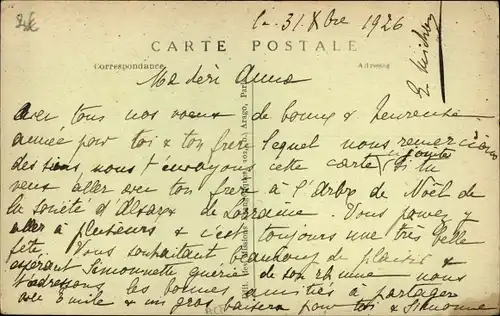 le 31 Xbre 1926
CARTE POSTALE
Correspondance
Adresse
Ma chère Anna
Avec tous nos voeux de bonne & heureuse
année pour toi & ton frère lequel nous remercions
des siens nous t'envoyons cette carte ci jointe si tu
veux aller avec ton frère à l'Arbre de Noël de
la société d'Alsace & de Lorraine. Vous pouvez y
aller à plusieurs & c'est toujours une très belle
fête. Vous souhaitant beaucoup de plaisir &
espérant Simonnette guérie de son rhume nous
t'adressons les bonnes amitiés à partager
avec Emile & un gros baiser pour toi & Simonne
E.
Arago, Par